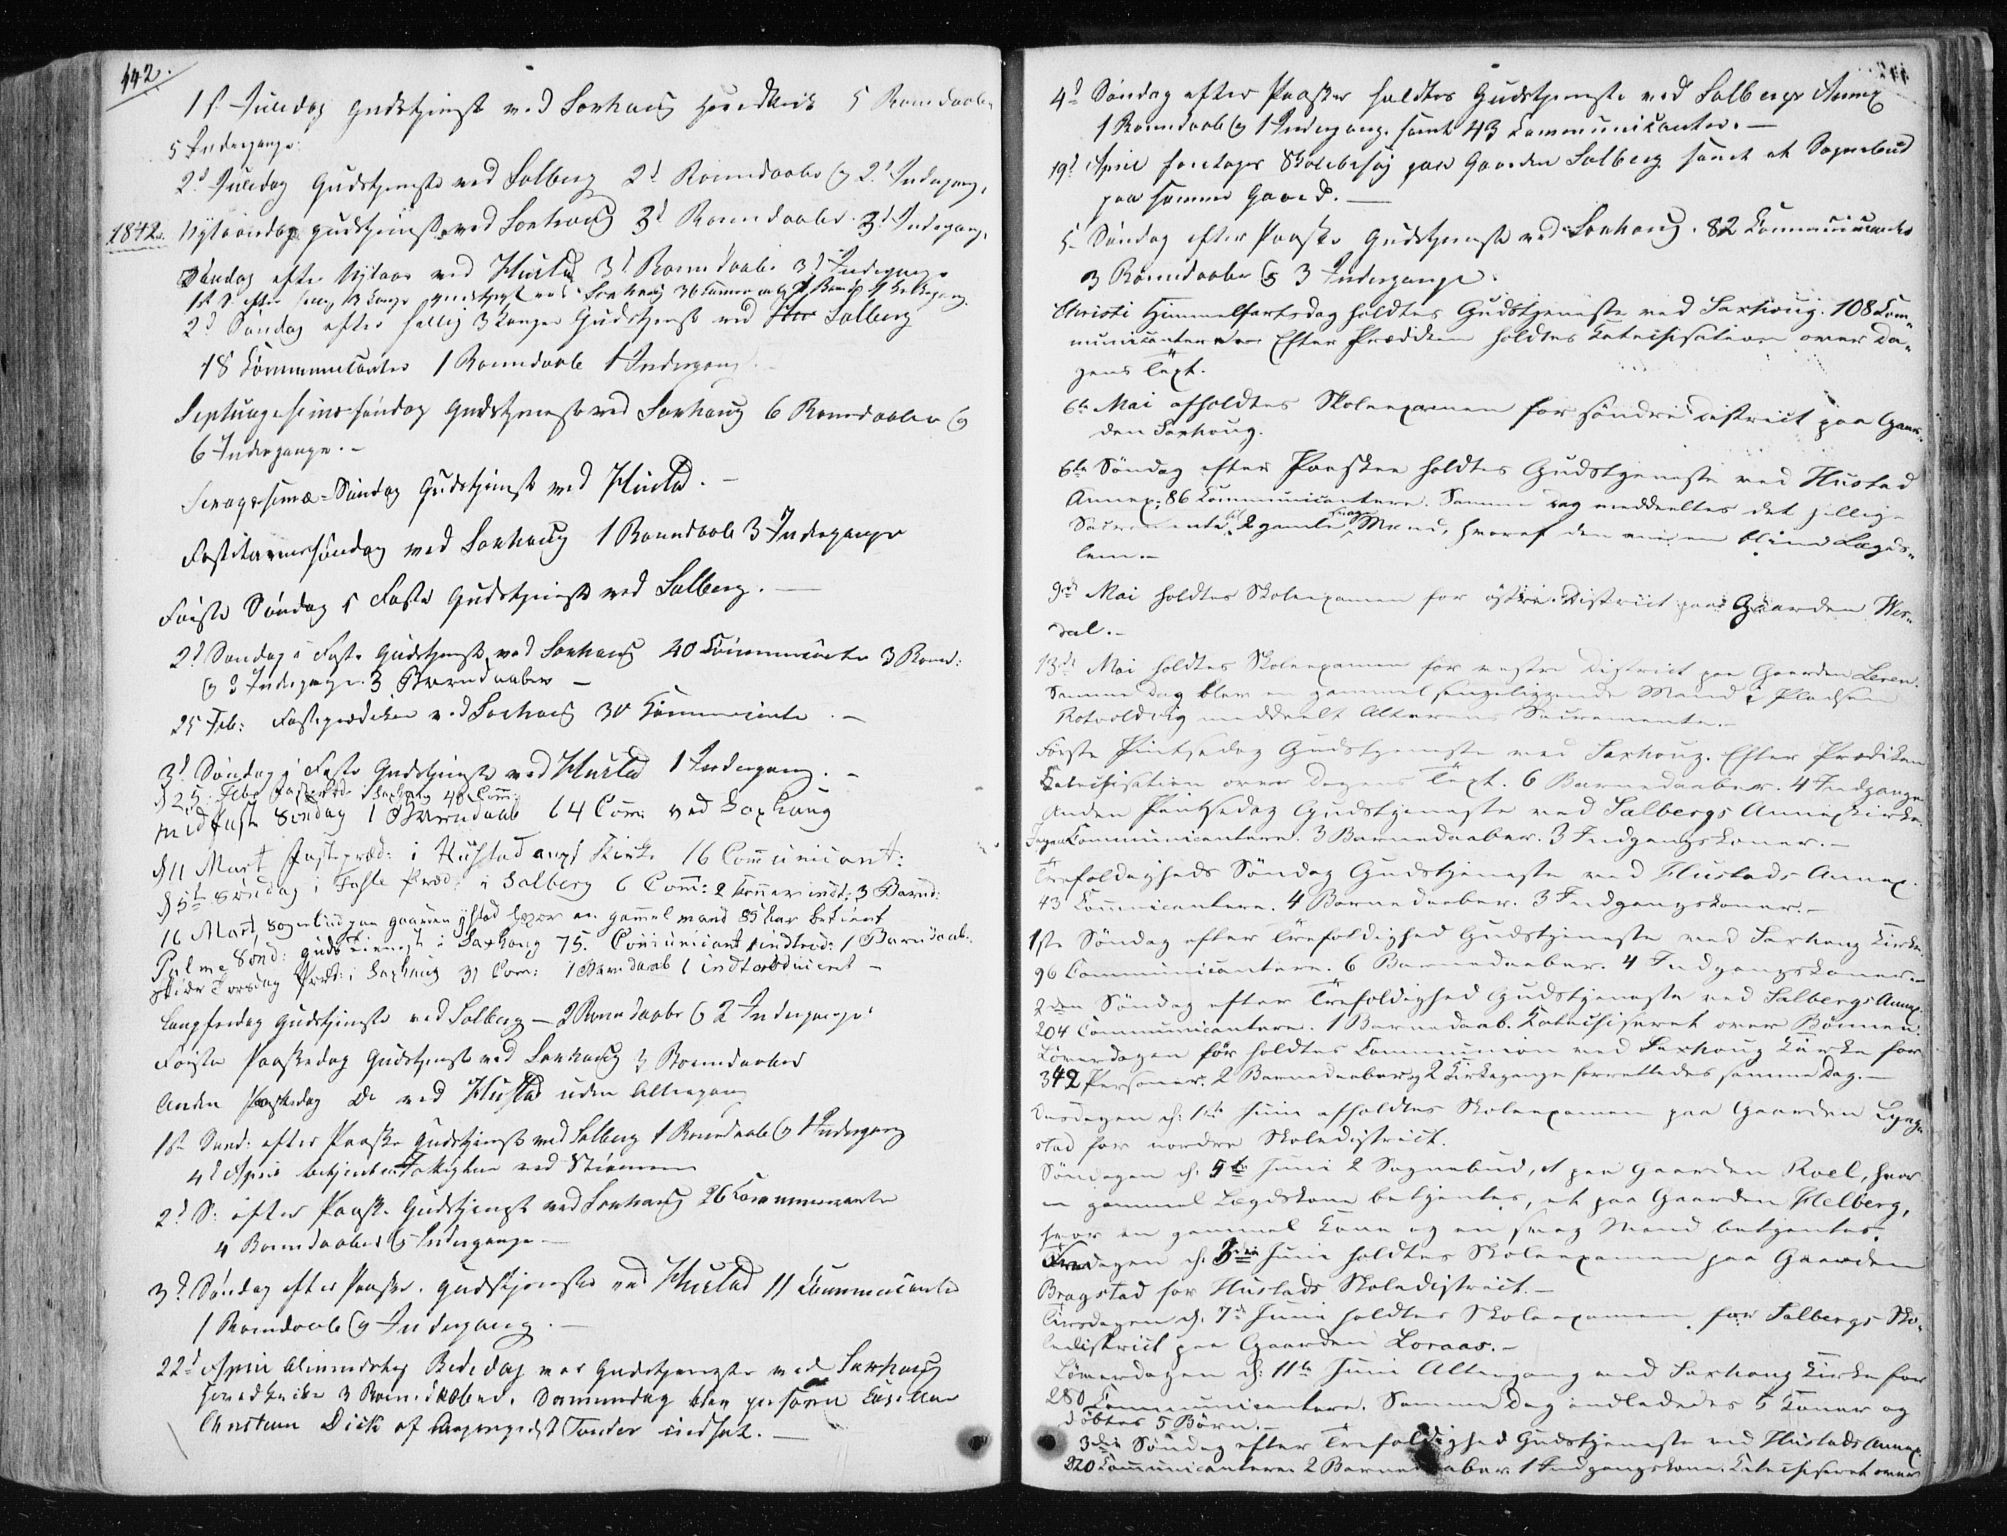 442.
1ste Juledag Gudstjeneste ved Saxhaug Hovedkirke 5 Barnedaabe
5 Indgange.
2d Juledag Gudstjeneste ved Salberg 2d Barnedaabe og 2d Indgang.
1842. Nytaarsdag Gudstjeneste ved Saxhaug 3d Barnedaabe 3d Indgang.
Søndag efter Nytaar ved Hustad 3d Barnedaabe 3d Indgange
1ste S. efter hellig 3 Konger ved Saxhaug 36
2d Søndag efter hellig 3 Konger Gudstjenest ved Salberg
18 Communicanter 1 Barnedaab 1 Indgang.
Septuagesima Søndag Gudstjeneste ved Saxhaug 6 Barnedaabe og
6 Indgange. -
Sexagesima-Søndag Gudstjeneste ved Hustad. -
Fastelavnssøndag ved Saxhaug 1 Barndaab 3 Indgange
Første Søndag i Faste Gudstjenest ved Salberg. -
2d Søndag i Faste Gudstjenest ved Saxhaug 40 Communicanter 3 Barnd:
og 3 Indgange. 3 Barndaaber -
25 Feb: Fasteprædiken ved Saxhaug 30 Communicanter. -
3d Søndag i Faste Gudstjeneste ved Hustad 1 Indgang. -
d 25. Feb. Saxhaug 40 Com:
Midfaste Søndag 1 Barndaab 64 Com. ved Saxhaug
d 11 Mart Fastepræd: i Hustad anx Kirke 16 Communicant:
d 5te Søndag i Faste Præd: i Salberg 6 Com: 2 3 Barnd:
16 Mart, Sognebud paa gaarden hvor en gammel mand 85 Aar betient
Palme Sønd: gudstienest i Saxhaug 75. Comunicant 1 indled: 1 Barndaab.
Skiær Torsdag Præd: i Saxhaug 31 Com: 1 Barndaab 1 indtroduceret -
Langfredag Gudstjeneste ved Salberg - 2 Barndaabe og 2 Indgange.
Første Paaskedag Gudstjenest ved Saxhaug 3 Barndaaber
Anden Paaskedag Do ved Hustad uden Altergang
1ste Sønd: efter Paaske Gudstjenest ved Salberg 1 Barndaab og 1 Indgang
4d April betjentes ved
2d S: efter Paaske Gudstjenest ved Saxhaug 26 Communicanter
4 Barndaaber og Indgange. -
3d Søndag efter Paaske. Gudstjeneste ved Hustad 11 Communicanter
1 Barndaab og Indgang. -
22d April Almindelig Bededag var Gudstjeneste ved Saxhaug
Hovedkirke 3 Barndaaber. Sammedag blev personel Capellan
Christian Dick af Tender indsat. -
4d Søndag efter Paaske holdtes Gudstjeneste ved Salbergs Annex
1 Barndaab og 1 Indgang. samt 43 Communicanter. -
19d April foretoges Skolebesøg paa Gaarden Salberg samt et Sognebud
paa samme Gaard. -
5. Søndag efter Paaske Gudstjeneste ved Saxhaug. 82 Communicanter
3 Barndaaber og 3 Indgange.
Christi Himmelfartsdag holdtes Gudstjeneste ved Saxhoug. 108 Com-
municanter. Efter Prædiken holdtes Catechisation over Da-
gens Text.
6te Mai afholdtes Skoleexamen for søndre District paa Gaar-
den Saxhoug.
6te Søndag efter Paaske holdtes Gudstjeneste ved Hustad
Annex; 86 Communicantere. Samme Dag meddeeltes det hellige
Sacramente til 2 gamle svage Mænd, hvoraf den ene en blind Lægds-
lem. -
9de Mai holdtes Skoleexamen for østre District paa Gaarden Wer-
dal. -
13de Mai holdtes Skoleexamen for vestre District paa Gaarden Leren.
Samme Dag blev en gammel sengeliggende Mand i Pladsen
Rotvoldvig meddeelt Alterens Sacramente. -
Første Pintsedag Gudstjeneste ved Saxhoug. Efter Prædiken
Catechisation over Dagens Text. 6 Barnedaaber. 4 Indgange
Anden Pintsedag Gudstjeneste ved Salbergs Annexkirke
Ingen Communicantere. 3 Barnedaaber. 3 Indgangskoner. -
Trefoldigheds Søndag Gudstjeneste ved Hustads Annex.
43 Communicantere. 4 Barnedaaber. 3 Indgangskoner. -
1ste Søndag efter Trefoldighed Gudstjeneste ved Saxhoug Kirke.
96 Communicantere. 6 Barnedaaber. 4 Indgangskoner. -
2den Søndag efter Trefoldighed Gudstjeneste ved Salbergs Annex.
204 Communicantere. 1 Barnedaab. Katechiseret over Bønnen.
Løverdagen før holdtes Communion ved Saxhoug Kirke for
342 Personer. 2 Barnedaaber og 2 Kirkegange forrettedes samme Dag. -
Onsdagen d: 1ste Juni afholdtes Skoleexamen paa Gaarden
stad for nordre Skoledistrict.
Søndagen d: 5te Juni 2 Sognebud, et paa Gaarden Roel, hvor
en gammel Lægdskone betjentes, et paa Gaarden Helberg,
hvor en gammel Kone og en svag Mand betjentes.
Fredagen d: 3die Juni holdtes Skoleexamen paa Gaarden
Bragstad for Hustads Skoledistrict. -
Tirsdagen d: 7de Juni holdtes Skoleexamen for Salbergs Sko-
ledistrict paa Gaarden Loraas. -
Løverdagen d: 11te Juni Altergang ved Saxhoug Kirke for
280 Communicantere. Samme Dag indlededes 5 Koner og
døbtes 5 Børn. -
3die Søndag efter Trefoldighed Gudstjeneste ved Hustads Annex.
220 Communicantere 2 Barnedaaber 1 Indgangskone. Catechiseret over